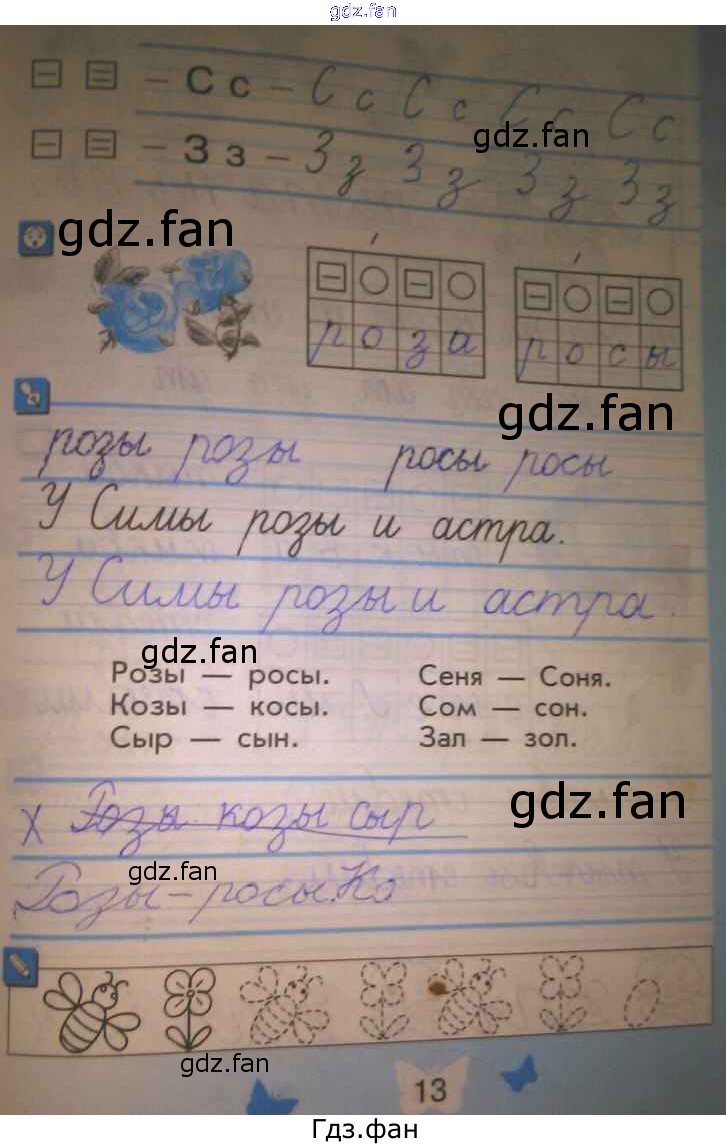 gdz.fan
– С с – С с С с С с С с
gdz.fan
– З з – З з З з З з З з
gdz.fan
р о з а
р о с ы
gdz.fan
розы розы росы росы
У Симы розы и астра.
У Симы розы и астра.
gdz.fan
Розы — росы. Сеня — Соня.
Козы — косы. Сом — сон.
Сыр — сын. Зал — зол.
gdz.fan
х Розы козы сыр
gdz.fan
Розы – росы. Ко
gdz.fan
13
Гдз.фан